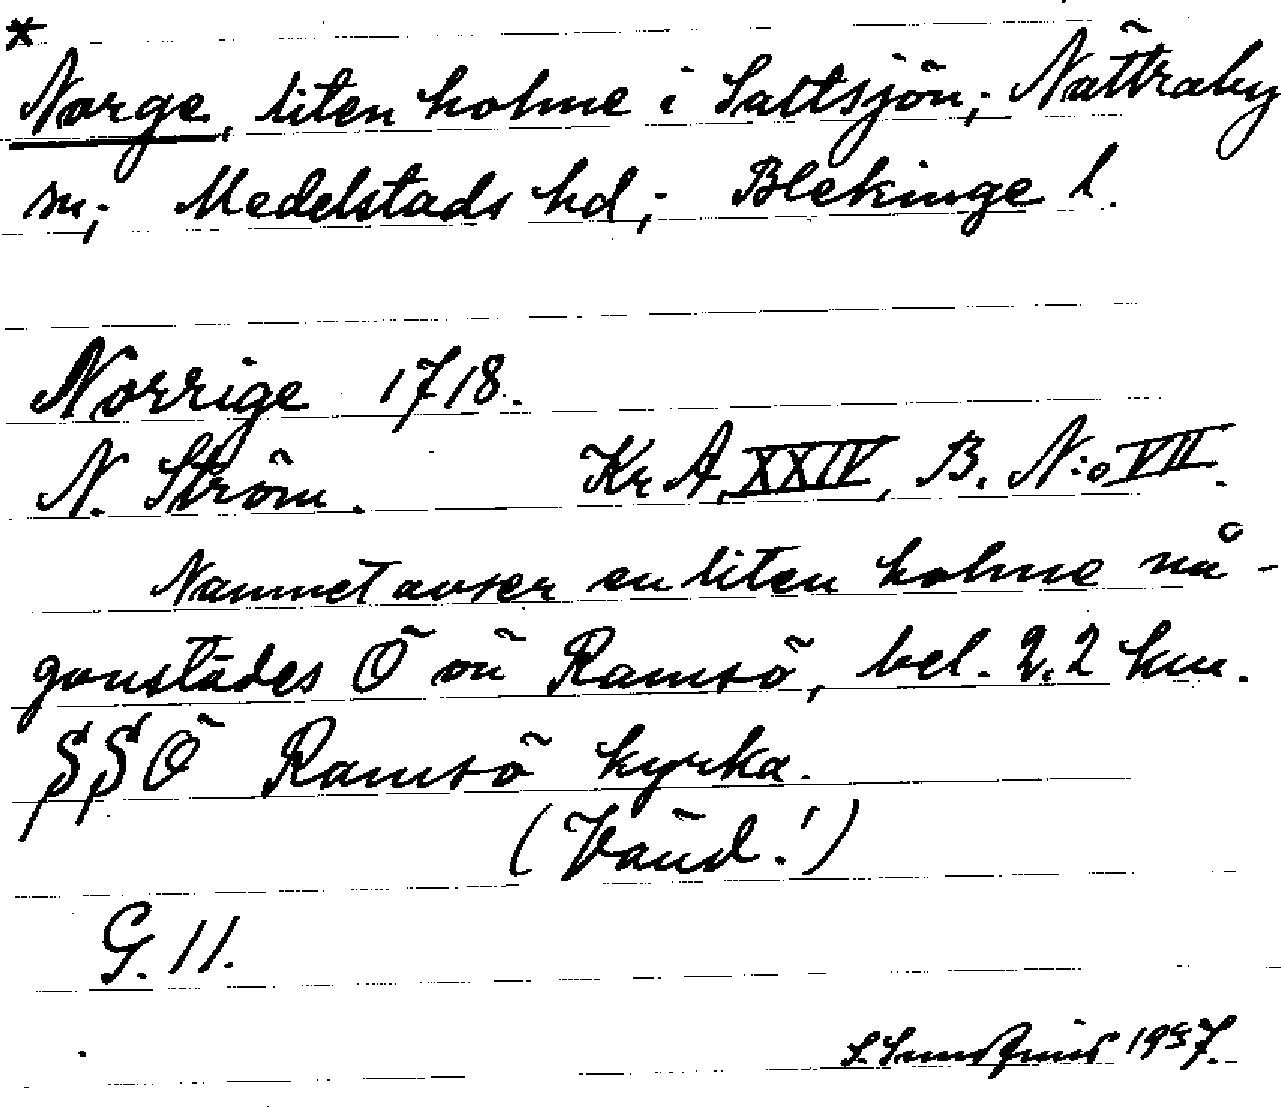 *
Norge, liten holme i Saltsjön; Nättraby
sn; Medelstads hd; Blekinge l.
Norrige 1718.
N. Ström. Kr A, XXIV, B. N:o VII.
Namnet avser en liten holme nå-
gonstädes Ö om Ramsö, bel. 2,2 km.
§§ Ö Ramsö kyrka.
(Vänd!)
G. 11.
1937.